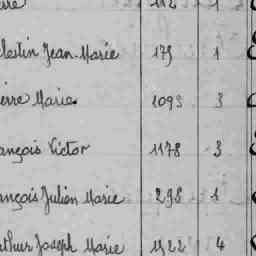 erre 112 1
lestin Jean-Marie 175 1
ierre Marie. 1093 3
ançois Victor 1178 3
ançois Julien Marie 298 1
rthur Joseph Marie 1522 4